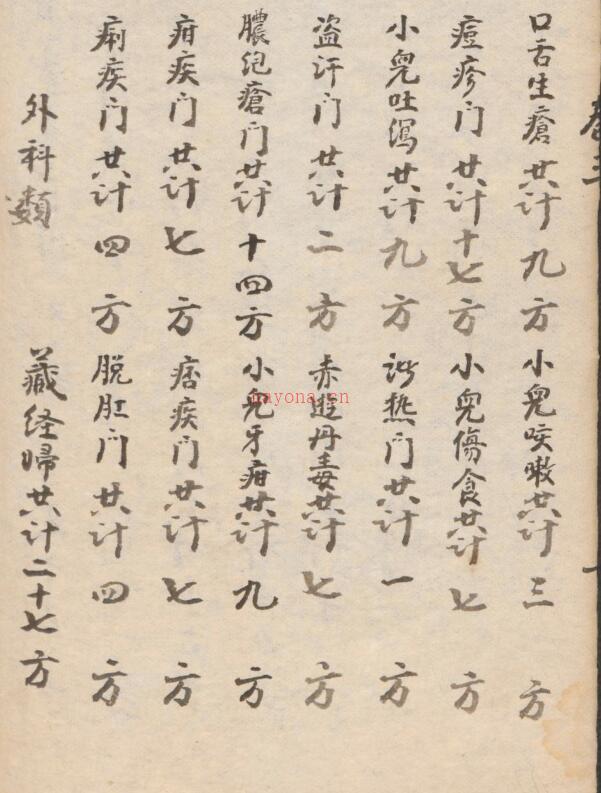 卷三
口舌生瘡共计九方 小兒咳嗽共计三方
痘疹门共计十七方 小兒傷食共计七方
小兒吐瀉共计九方 诸热门共计一方
盗汗门共计二方 赤遊丹毒共计七方
膿疱瘡门共计十四方 小兒牙疳共计九方
疳疾门共计七方 痞疾门共计七方
痢疾门共计四方 脱肛门共计四方
外科類 藏经㷌共计二十七方
nayona.cn